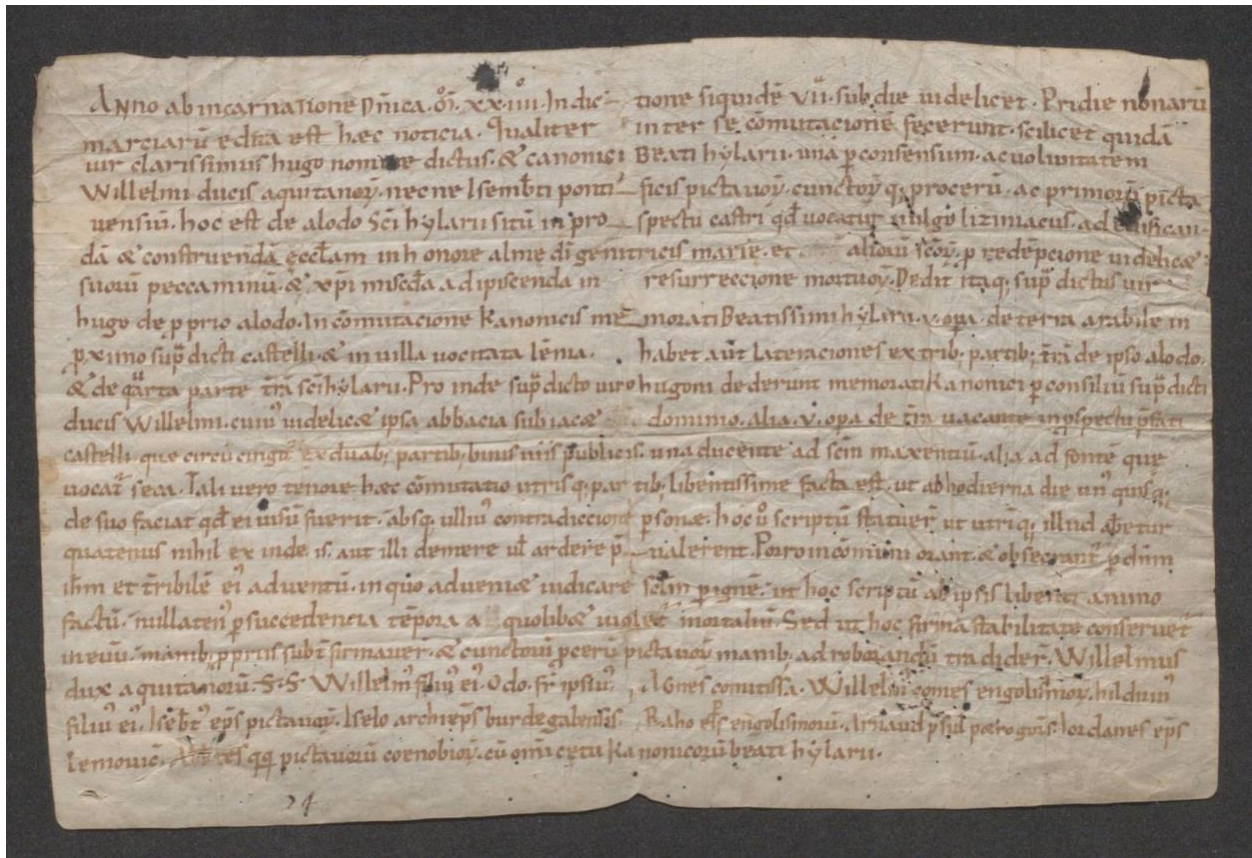 Anno ab incarnatione dn̄ica. ōi. xx. iiii. Indic tione siquidē vii. sub die videlicet. Pridie nonarū
marciarū edita est hæc noticia. Qualiter inter se cōmutacionē fecerunt. scilicet quidā
vir clarissimus hugo nomine dictus. & canonici Beati hylarii. una p̄ consensum. ac voluntatem
Willelmi ducis aquitanoꝝ. necne Isemb̄ti ponti ficis pictavoꝝ. cunctoꝝ q; procerū ac primorū picta
vensiū. hoc est de alodo Sc̄i hylarii sitū in pro spectu castri qd̄ vocatur vulgo liziniacus. ad edifican
dā & construendā ęccl̄am in honore alme dī genitricis marie. et aliorū sc̄oꝝ. p̄ redēpcione videlicæ
suorū peccaminū. & xp̄i mīscd̄a adipiscenda in resurreccione mortuoꝝ. Dedit itaq; sup̄ dictus vir
hugo de p̄prio alodo. In cōmutacione Kanonicis me morati Beatissimi hylirii. v. opa. de terra arabile in
p̄ximo sup̄ dicti castelli. & in villa vocitata lēnia. habet aūt lateraciones ex trib; partib; tr̄ā de ipso alodo.
& de quarta parte tr̄ā sc̄i hylarii. Pro inde sup̄ dicto viro hugoni dederunt memorati Kanonici p̄ consiliū sup̄ dicti
ducis Willelmi. cuiꝰ videlicæ ipsa abbacia subiacæ dominio. alia. v. opa de tr̄a vacante in p̄spectu p̄fati
castelli. que circū cingit̄ ex duab; partib; binis viis publicis. una ducente ad sc̄m maxentiū. alia ad fontē que
vocat̄ seca. Tali vero tenore hæc cōmutatio utrisq; par tib; libentissime facta est. ut ab hodierna die unꝰ quisq;
de suo faciat qd̄ ei visū fuerit. absq; ulliꝰ contradiccione p̄sonæ. hoc ū scriptū statuer̄ ut utriq; illud
quatenus nihil ex inde is. aut illi demere ul̄ ardere p̄ valerent. Porro in cōmuni orant. & obsecrant̄ p̄ dn̄m
ih̄m et tr̄ibilē eiꝰ adventū. in quo adveniæ iudicare sc̄lm p̄ ignē. ut hoc scriptū ab ipsis libenti animo
factū. nullatenꝰ p̄ succedencia tēpora a quolibæ violet̄ mortaliū. Sed ut hoc firma stabilitate conservet̄
in evū. manib; p̄priis subt̄ firmaver̄. & cunctoꝝ p̄cerū pictavoꝝ manib; ad roborandū tradider̄. Willelmus
dux aquitanorū. S. S. Willelmꝰ filiꝰ eiꝰ. Odo. fr̄ ipsiꝰ. Agnes comitissa. Willelmꝰ comes engolismoꝝ. hilduinꝰ
filiꝰ eiꝰ. Iseb̄tꝰ ep̄s pictavoꝝ. Iselo archiep̄s burdegalensis. Raho ep̄s engolismorū. Arnaud p̄sul petrogoris. Iordanes ep̄s
lemovic̄. Abbates qq; pictavorū coenobioꝝ. cū om̄i cetu Kanonicorū beati hylarii.
24